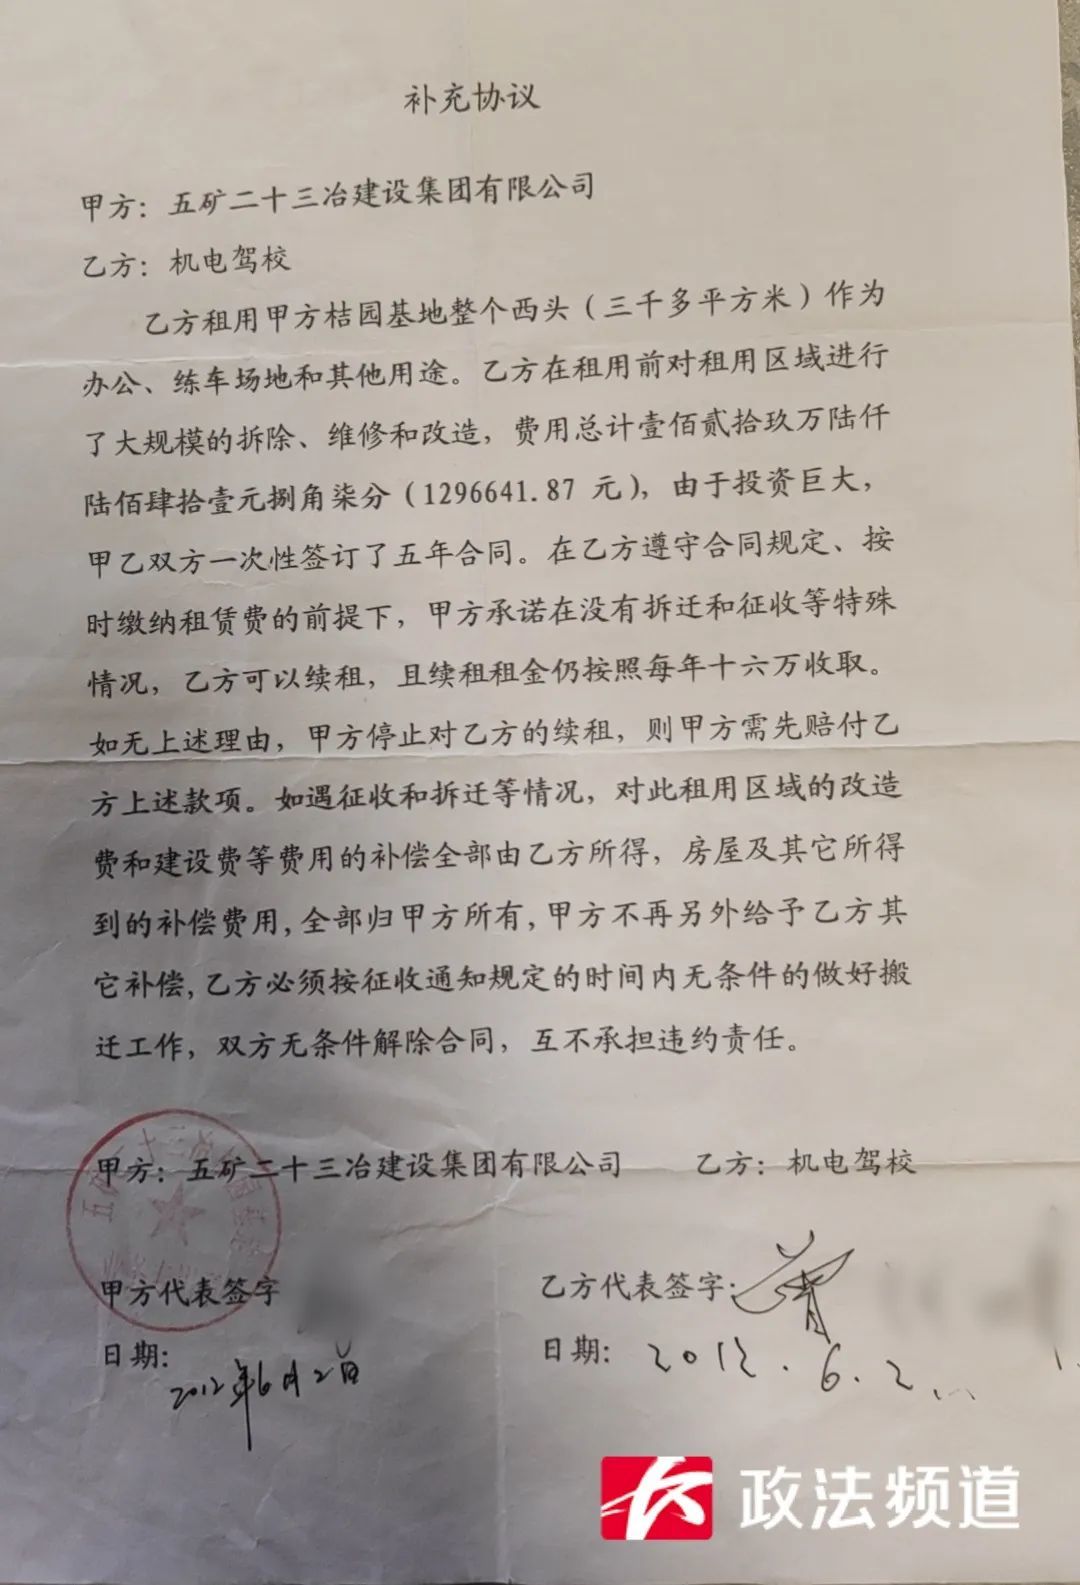 补充协议
甲方：五矿二十三冶建设集团有限公司
乙方：机电驾校
乙方租用甲方桔园基地整个西头（三千多平方米）作为
办公、练车场地和其他用途。乙方在租用前对租用区域进行
了大规模的拆除、维修和改造，费用总计壹佰贰拾玖万陆仟
陆佰肆拾壹元捌角柒分（1296641.87 元），由于投资巨大，
甲乙双方一次性签订了五年合同。在乙方遵守合同规定、按
时缴纳租赁费的前提下，甲方承诺在没有拆迁和征收等特殊
情况，乙方可以续租，且续租租金仍按照每年十六万收取。
如无上述理由，甲方停止对乙方的续租，则甲方需先赔付乙
方上述款项。如遇征收和拆迁等情况，对此租用区域的改造
费和建设费等费用的补偿全部由乙方所得，房屋及其它所得
到的补偿费用，全部归甲方所有，甲方不再另外给予乙方其
它补偿，乙方必须按征收通知规定的时间内无条件的做好搬
迁工作，双方无条件解除合同，互不承担违约责任。
甲方：五矿二十三冶建设集团有限公司 乙方：机电驾校
甲方代表签字 乙方代表签字：
日期： 2012年6月2日 日期： 2012.6.2
政法频道